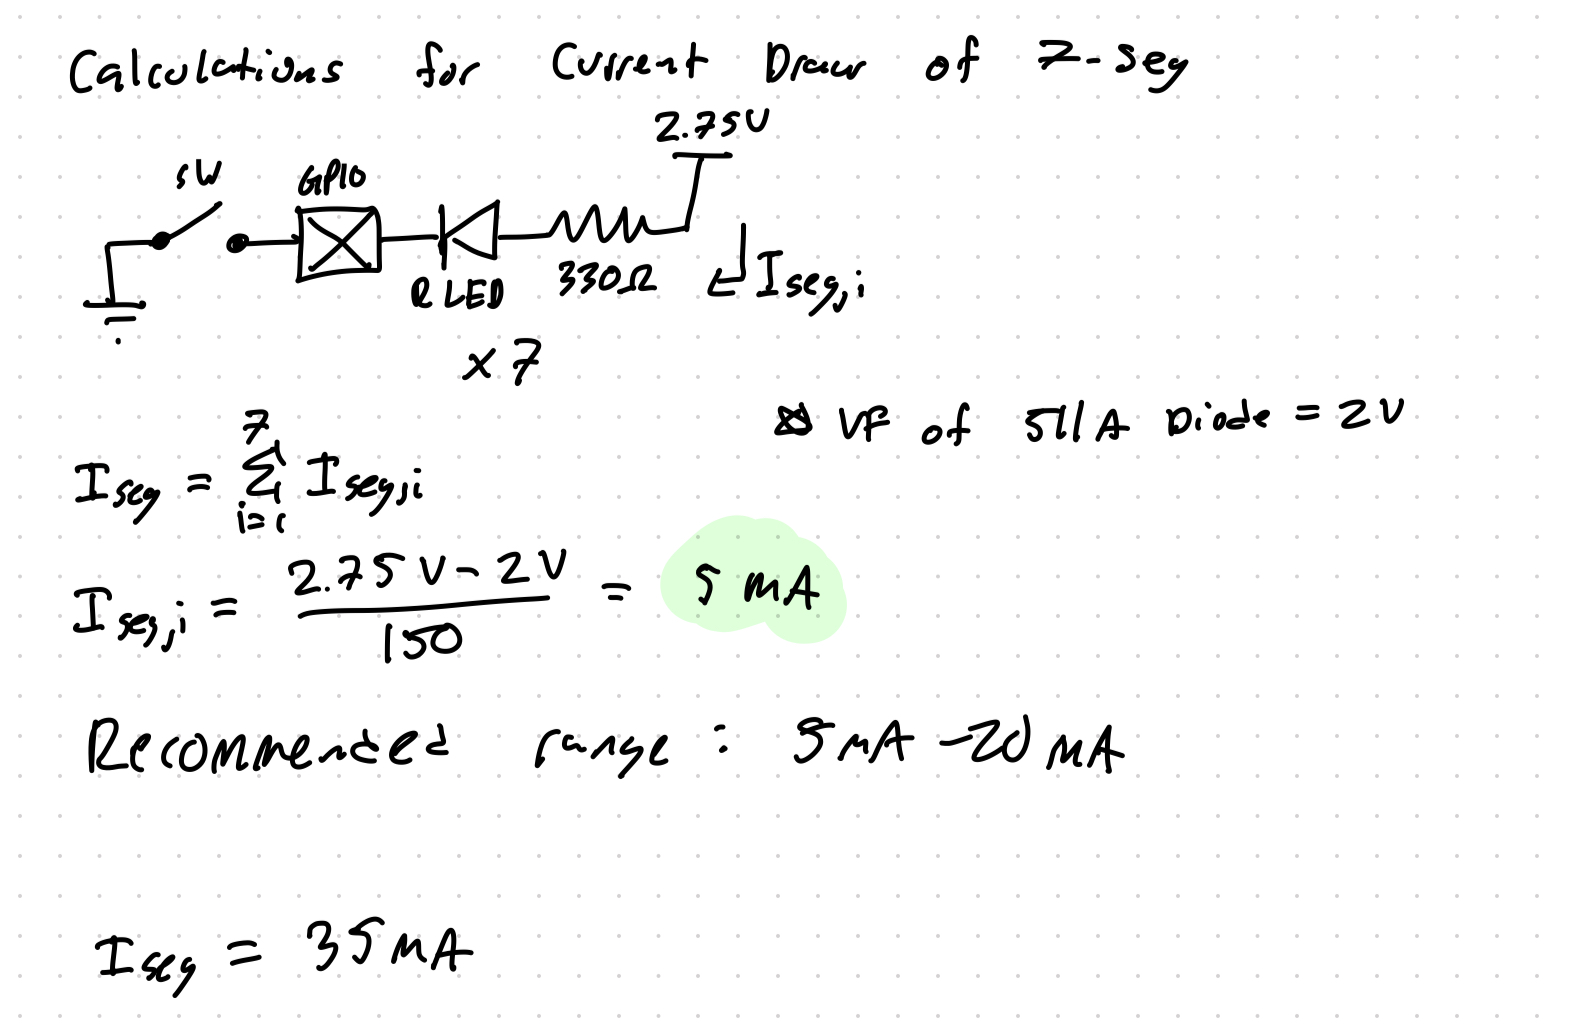 Calculations for Current Draw of 7-Seg
2.75V
SW
GPIO
R LED
330Ω
I seg,i
x 7
VF of 511A Diode = 2V
I seg = 7 Σ i=1 I seg,i
I seg,i = 2.75 V - 2 V / 150 = 5 mA
Recommended range : 5mA - 20 mA
I seg = 35 mA